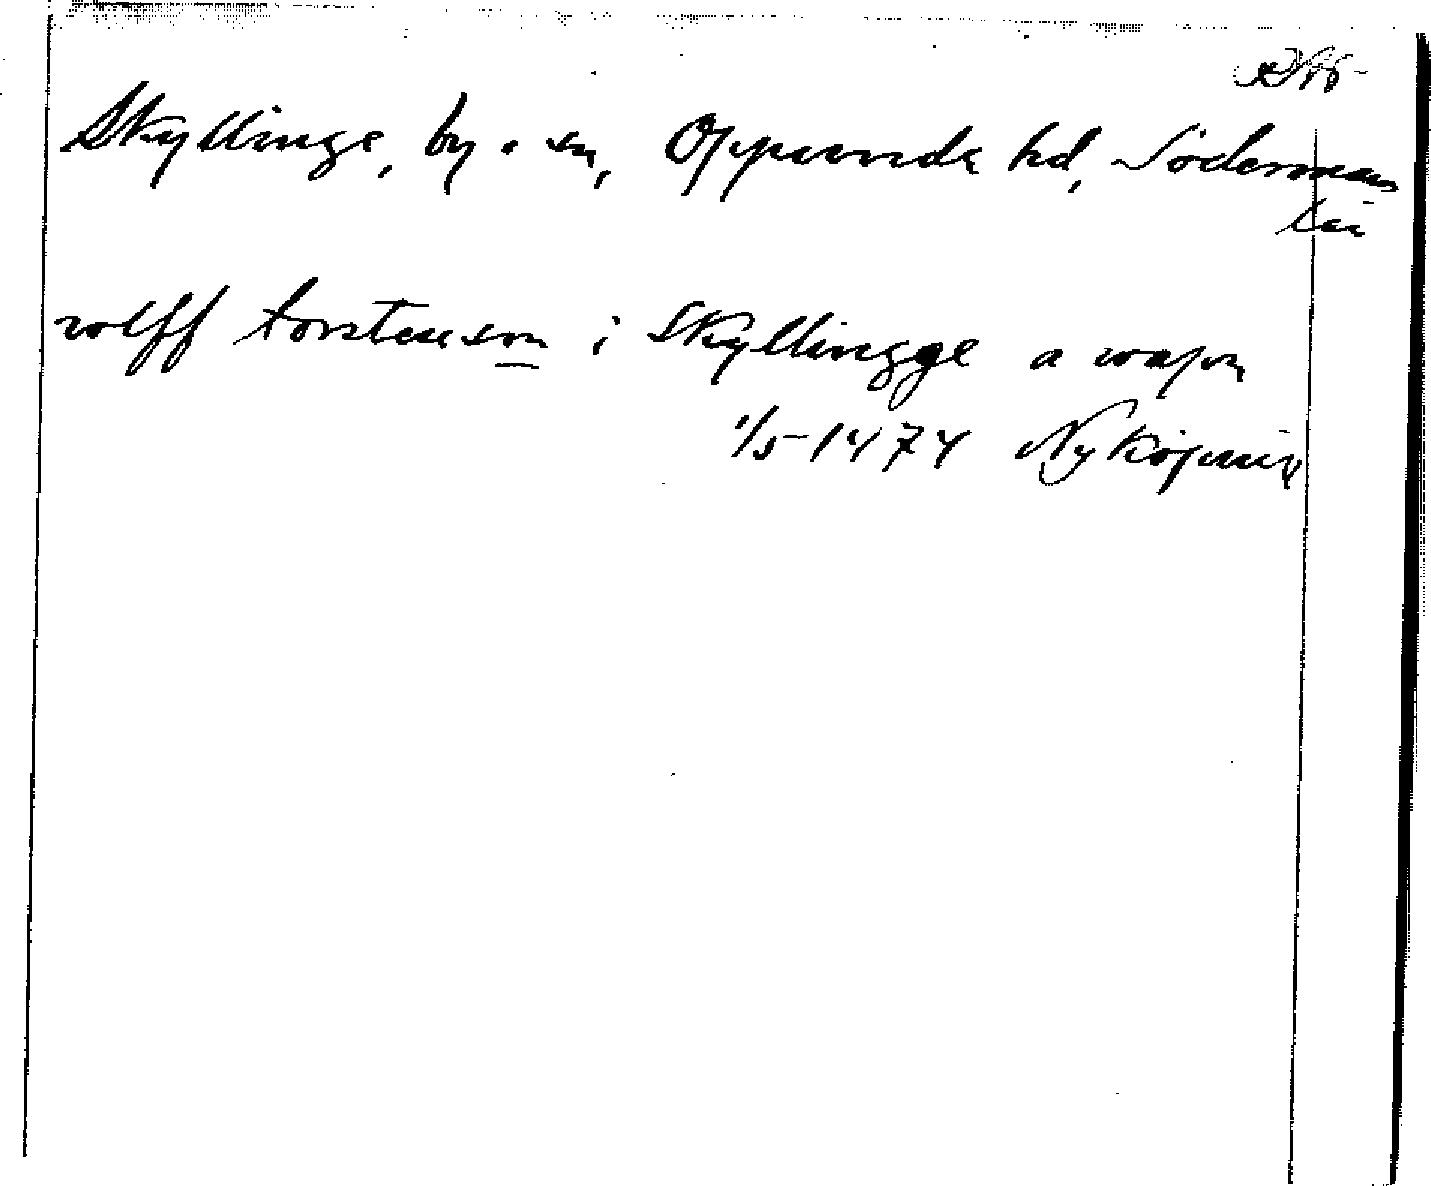 Skyllinge, by o sn, Oppunda hd, Söderman
län
rolff torstensson i Skyllingge a wapn
1/5 1474 Nyköping